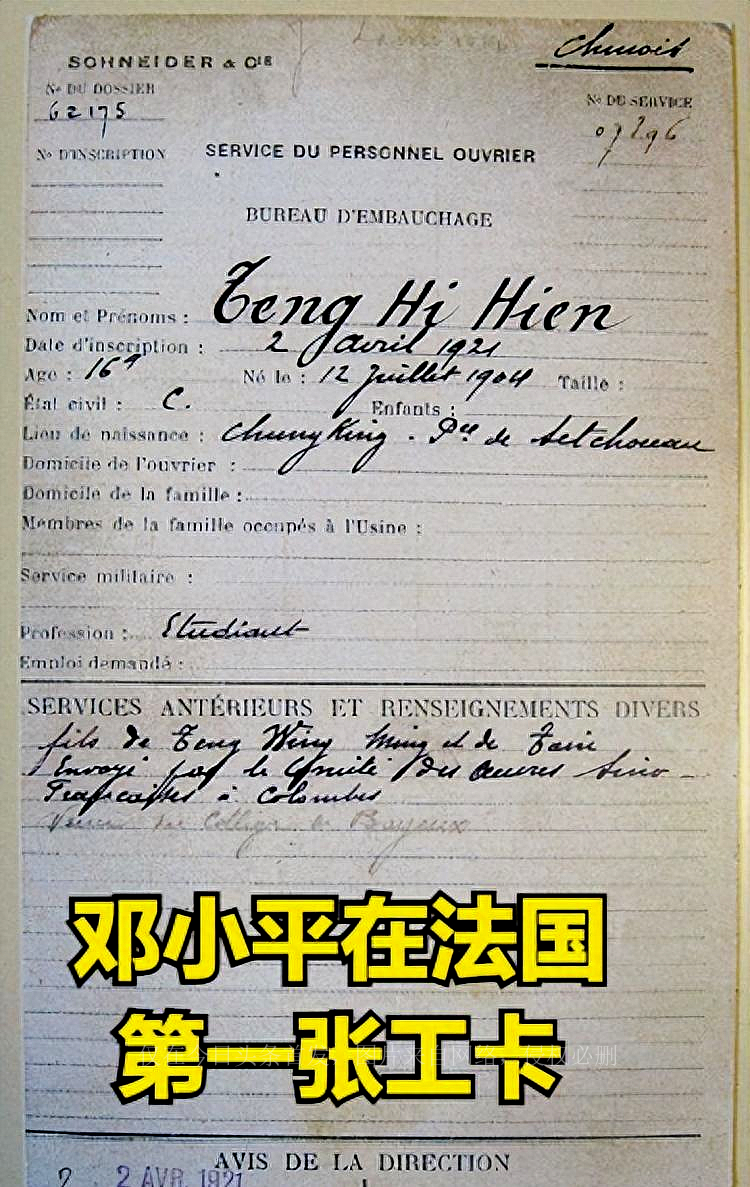 Chinois
SCHNEIDER & CIE
No DU DOSSIER
62175
No DU SERVICE
07296
No D'INSCRIPTION
SERVICE DU PERSONNEL OUVRIER
BUREAU D'EMBAUCHAGE
Nom et Prénoms : Teng Hi Hien
Date d'inscription : 2 avril 1921
Age : 16 a Né le : 12 Juillet 1904 Taille :
État civil : C. Enfants :
Lieu de naissance : Chung King - Pce de Setchouan
Domicile de l'ouvrier :
Domicile de la famille :
Membres de la famille occupés à l'Usine :
Service militaire :
Profession : Etudiant
Emploi demandé :
SERVICES ANTÉRIEURS ET RENSEIGNEMENTS DIVERS
fils de Teng Wen Ming et de Tain
Envoyé par le Comité des Oeuvres Sino-
Françaises à Colombes
Venu du Collège de Bayeux
邓小平在法国
第一张工卡
AVIS DE LA DIRECTION
2 2 AVR. 1921